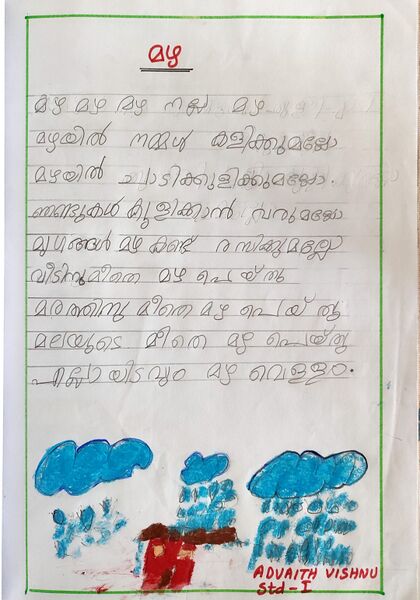 മഴ
മഴ മഴ മഴ നല്ല മഴ
മഴയിൽ നമ്മൾ കളിക്കുമല്ലോ
മഴയിൽ ചാടിക്കുളിക്കുമല്ലോ.
ഞണ്ടുകൾ കുളിക്കാൻ വരുമല്ലോ
മൃഗങ്ങൾ മഴ കണ്ട് രസിക്കുമല്ലോ
വീടിനുമീതെ മഴ പെയ്തു
മരത്തിനു മീതെ മഴ പെയ്തു
മലയുടെ മീതെ മഴ പെയ്തു
എല്ലായിടവും മഴ വെള്ളം.
ADVAITH VISHNU
Std-I